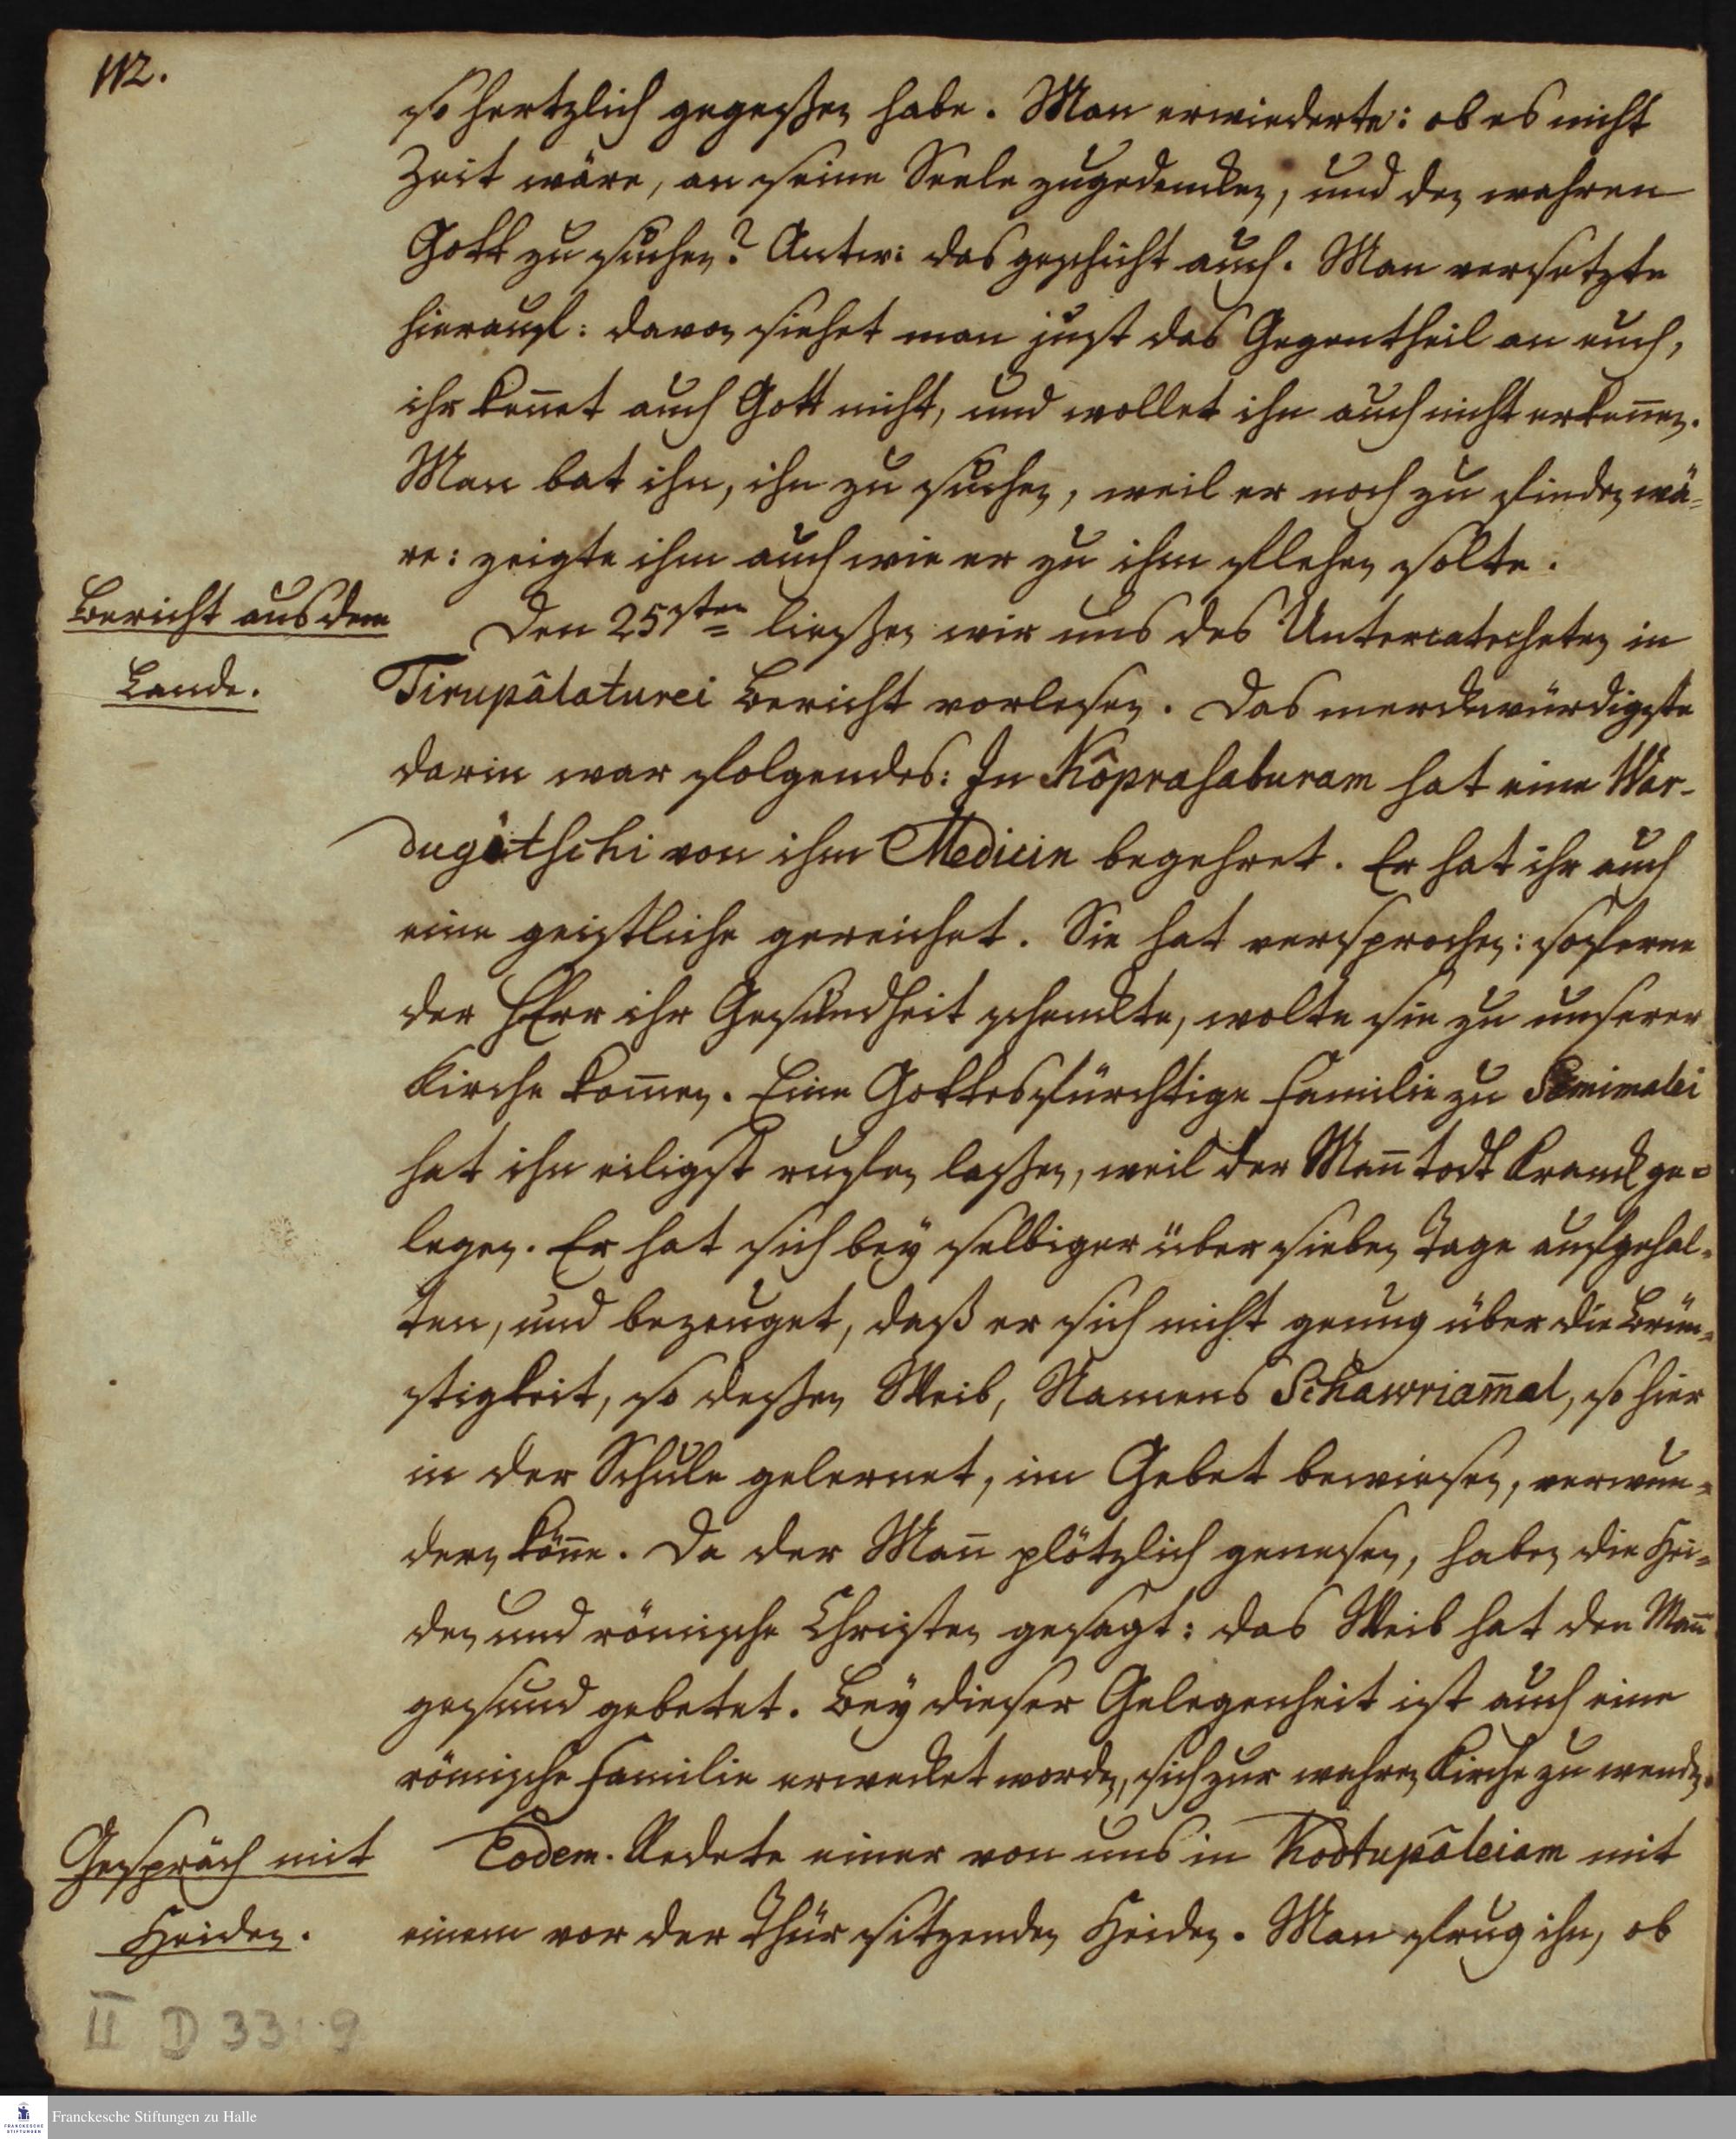 112.
so hertzlich gegeßen habe. Man erwiederte: ob es nicht
Zeit wäre, an seine Seele zugedencken, und den wahren
Gott zu suchen? Antw: das geschicht auch. Man versetzte
hierauf: davon siehet man just das Gegentheil an euch,
ihr kennet auch Gott nicht, und wollet ihn auch nicht erkennen.
Man bat ihn, ihn zu suchen, weil er noch zu finden wä-
re: zeigte ihm auch wie er zu ihm flehen solte.
Bericht aus dem
Lande.
Den 25sten ließen wir uns des Untercatecheten in
Tirupâlaturei Bericht vorlesen. Das merckwürdigste
darin war folgendes: In Kôprahaburam hat eine War-
dugätschi von ihm Medicin begehret. Er hat ihr auch
eine geistliche gereichet. Sie hat versprochen: soferne
der HErr ihr Gesundheit schenckte, wolte sie zu unserer
Kirche kom̄en. Eine Gottesfürchtige Familie zu Semimalei
hat ihn eiligst rufen laßen, weil der Man̄ todt kranck ge-
legen. Er hat sich bey selbiger über sieben Tage aufgehal-
ten, und bezeuget, daß er sich nicht genug über die Brün-
stigkeit, so deßen Weib, Namens Schawriam̄al, so hier
in der Schule gelernet, im Gebet bewiesen, verwun-
dern kön̄e. Da der Man̄ plötzlich genesen, haben die Hei-
den und römische Christen gesagt: das Weib hat den Man̄
gesund gebetet. Bey dieser Gelegenheit ist auch eine
römische Familie erwecket worden, sich zur wahren Kirche zu wenden.
Gespräch mit
Heiden.
Eodem. Redete einer von uns in Kodtupâleiam mit
einem vor der Thür sitzenden Heiden. Man frug ihn, ob
II D 33 : 9
Franckesche Stiftungen zu Halle
FRANCKESCHE
STIFTUNGEN